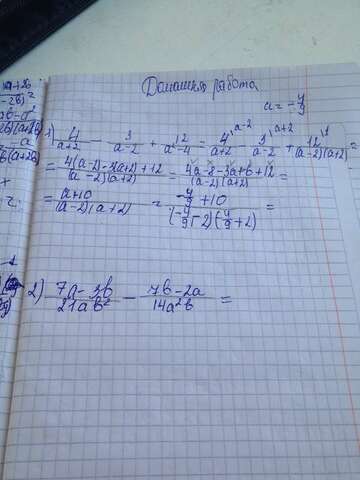 Домашняя работа
a = -4/9
1) 4/(a+2) - 3/(a-2) + 12/(a²-4) = 4/(a+2) ^(a-2) - 3/(a-2) ^(a+2) + 12/((a-2)(a+2)) ^1 =
= (4(a-2)-3(a+2)+12)/((a-2)(a+2)) = (4a-8-3a+6+12)/((a-2)(a+2)) =
= (a+10)/((a-2)(a+2)) = (-4/9+10)/((-4/9-2)(-4/9+2)) =
2) (7a-3b)/(21ab²) - (7b-2a)/(14a²b) =